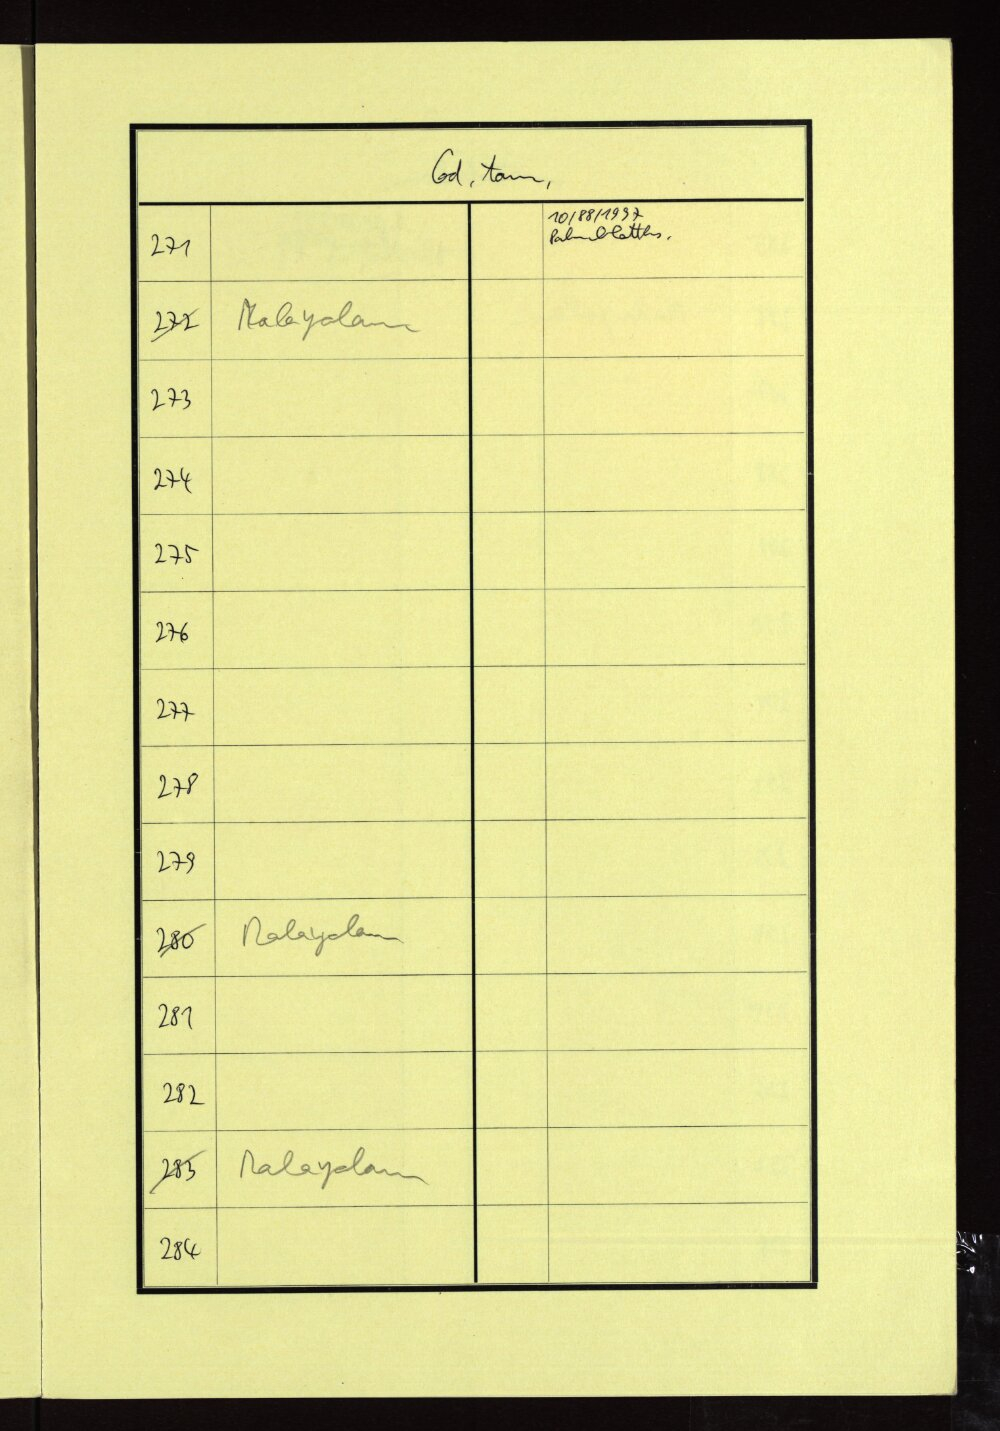 Cod. tam.
271
10/88/1997
Palmblatths.
272 Malayalam
273
274
275
276
277
278
279
280 Malayalam
281
282
283 Malayalam
284